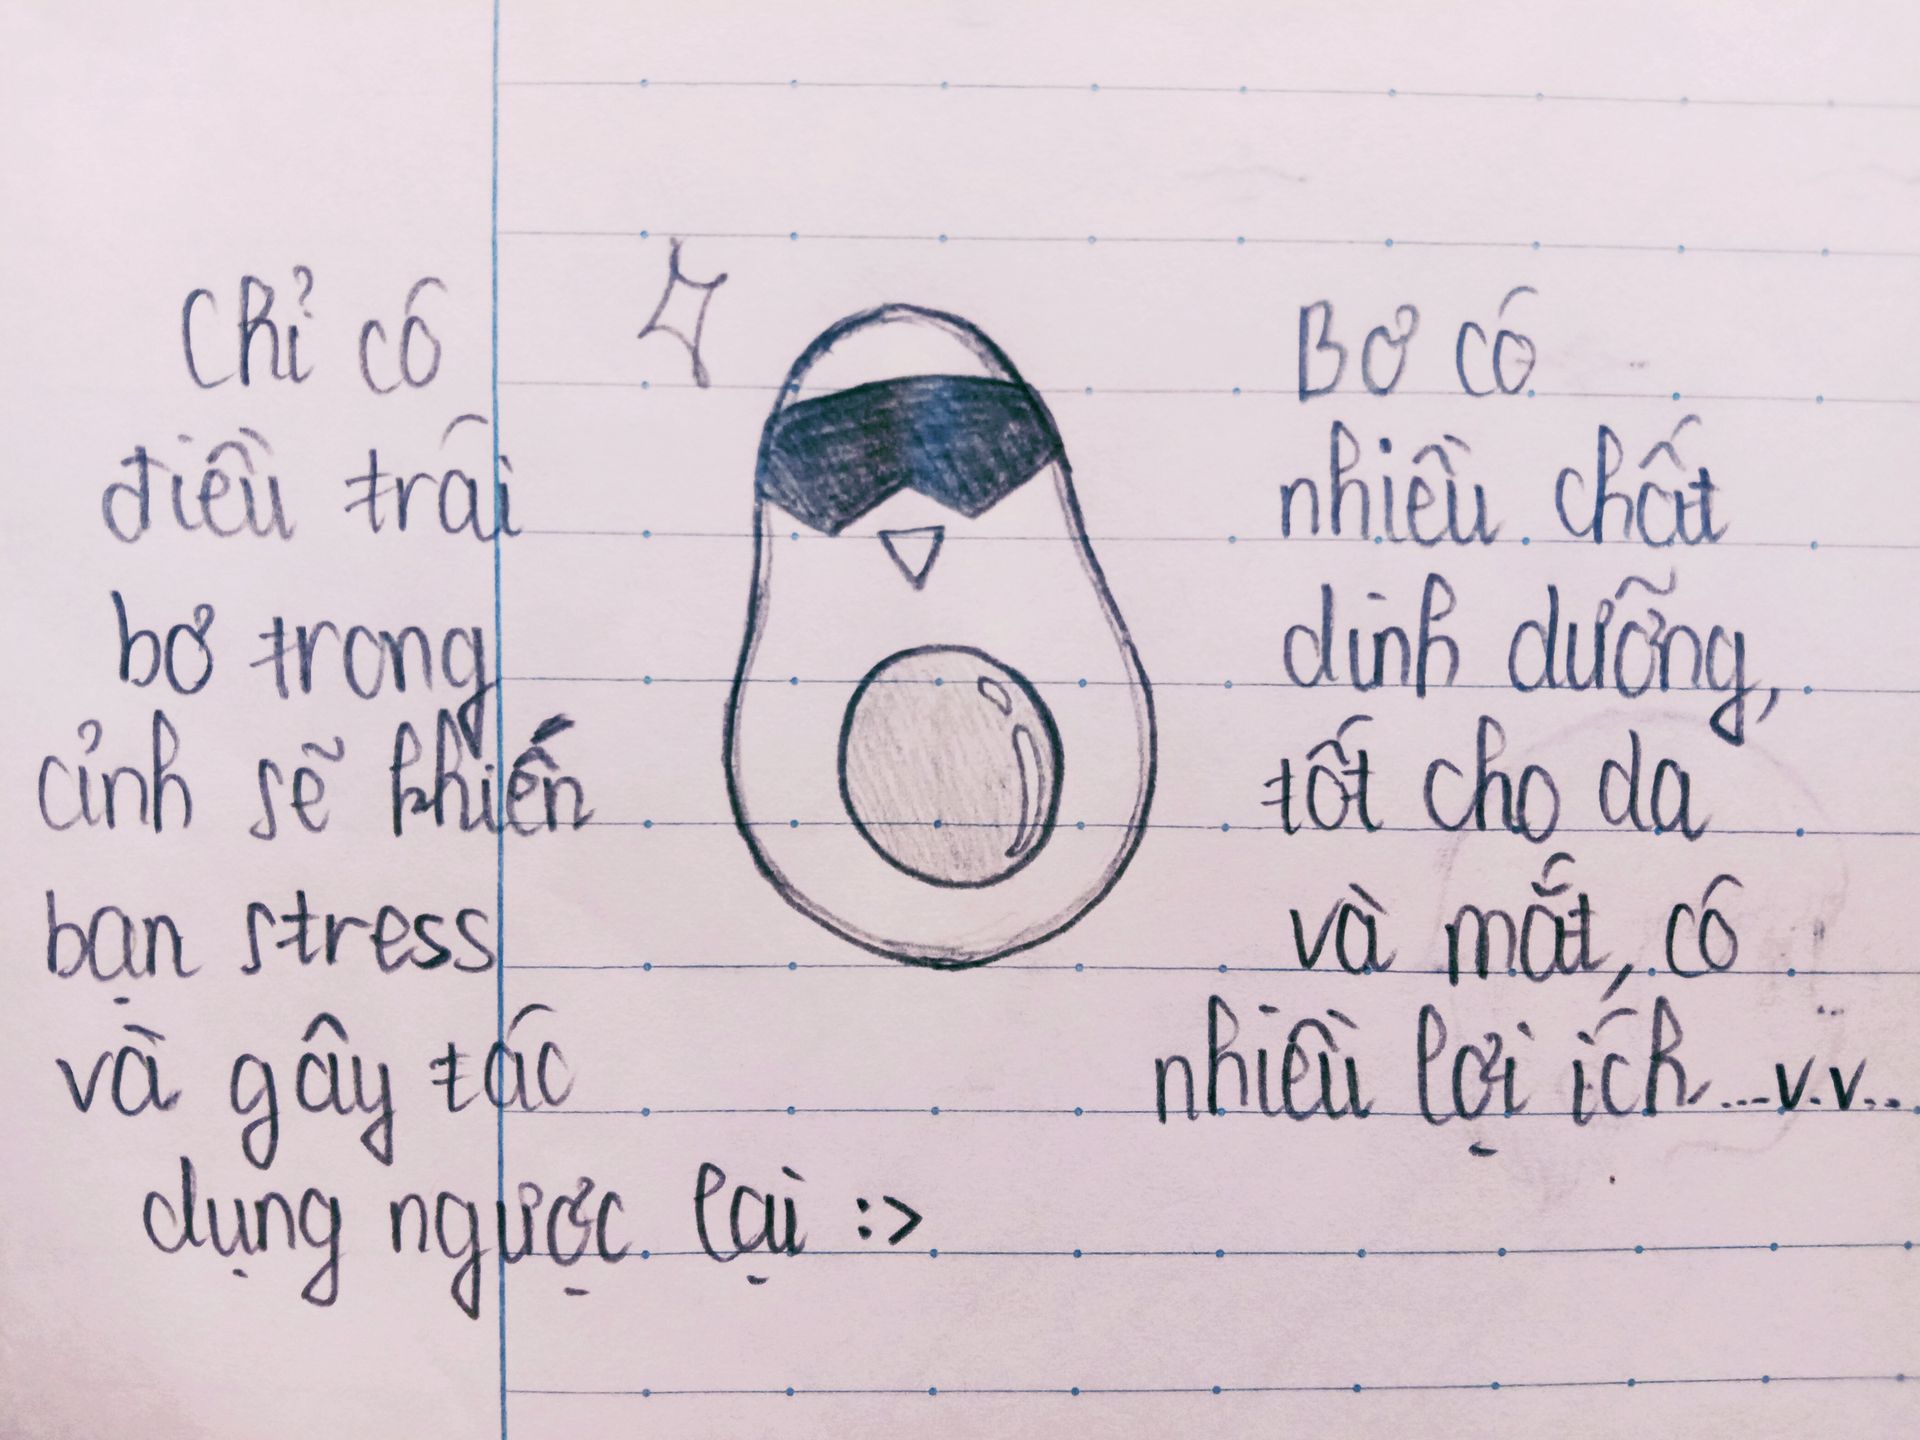 Chỉ có
điều trái
bơ trong
cỉnh sẽ khiến
bạn stress
và gây tác
dụng ngược lại :>
Bơ có
nhiều chất
dinh dưỡng,
tốt cho da
và mắt, có
nhiều lợi ích...v.v...